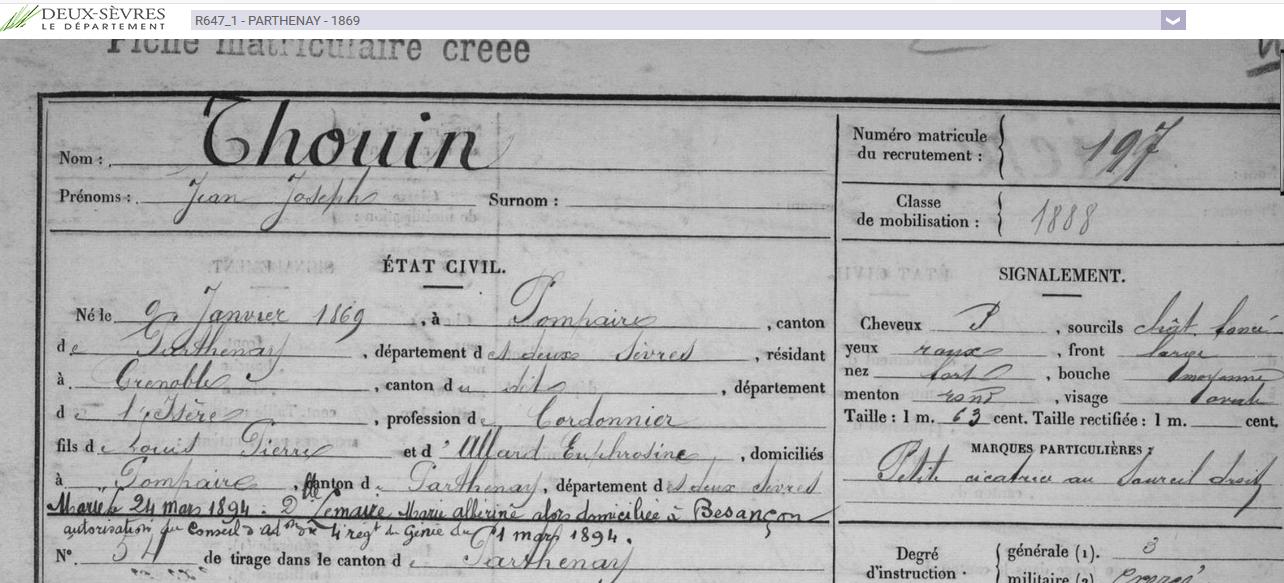 DEUX-SÈVRES
LE DÉPARTEMENT
R647_1 - PARTHENAY - 1869
Fiche matriculaire créée
Nom : Thouin
Prénoms : Jean Joseph Surnom :
Numéro matricule du recrutement : 197
Classe de mobilisation : 1888
ÉTAT CIVIL.
Né le Janvier 1869, à Pompaire, canton
de Parthenay, département des deux Sèvres, résidant
à Grenoble, canton du dit, département
de l'Isère, profession de Cordonnier
fils de Louis Pierre et d'Allard Euphrosine, domiciliés
à Pompaire, canton de Parthenay, département des deux sèvres
Marié le 24 mars 1894. Dlle Lemaire Marie albérine alors domiciliée à Besançon
autorisation du Conseil d'adon du 4e régt du Génie du 1 mars 1894.
N° 54 de tirage dans le canton de Parthenay
SIGNALEMENT.
Cheveux, sourcils chât. foncé
yeux roux, front large
nez fort, bouche moyenne
menton rond, visage ovale
Taille : 1 m. 63 cent. Taille rectifiée : 1 m. cent.
MARQUES PARTICULIÈRES :
Petite cicatrice au sourcil droit
Degré d'instruction : générale (1). 3
militaire (2) exercé